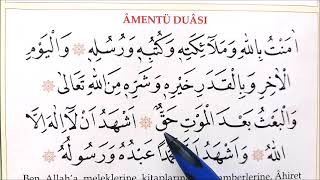 ÂMENTÜ DUÂSI
اٰمَنْتُ بِاللّٰهِ وَمَلٰٓئِكَتِهٖ وَكُتُبِهٖ وَرُسُلِهٖ وَالْيَوْمِ
الْاٰخِرِ وَبِالْقَدَرِ خَيْرِهٖ وَشَرِّهٖ مِنَ اللّٰهِ تَعَالٰى
وَالْبَعْثُ بَعْدَ الْمَوْتِ حَقٌّ اَشْهَدُ اَنْ لَٓا اِلٰهَ اِلَّا
اللّٰهُ وَاَشْهَدُ عَبْدُهُ وَرَسُولُهُ
Ben, Allah'a, meleklerine, kitaplarına, Âhiret